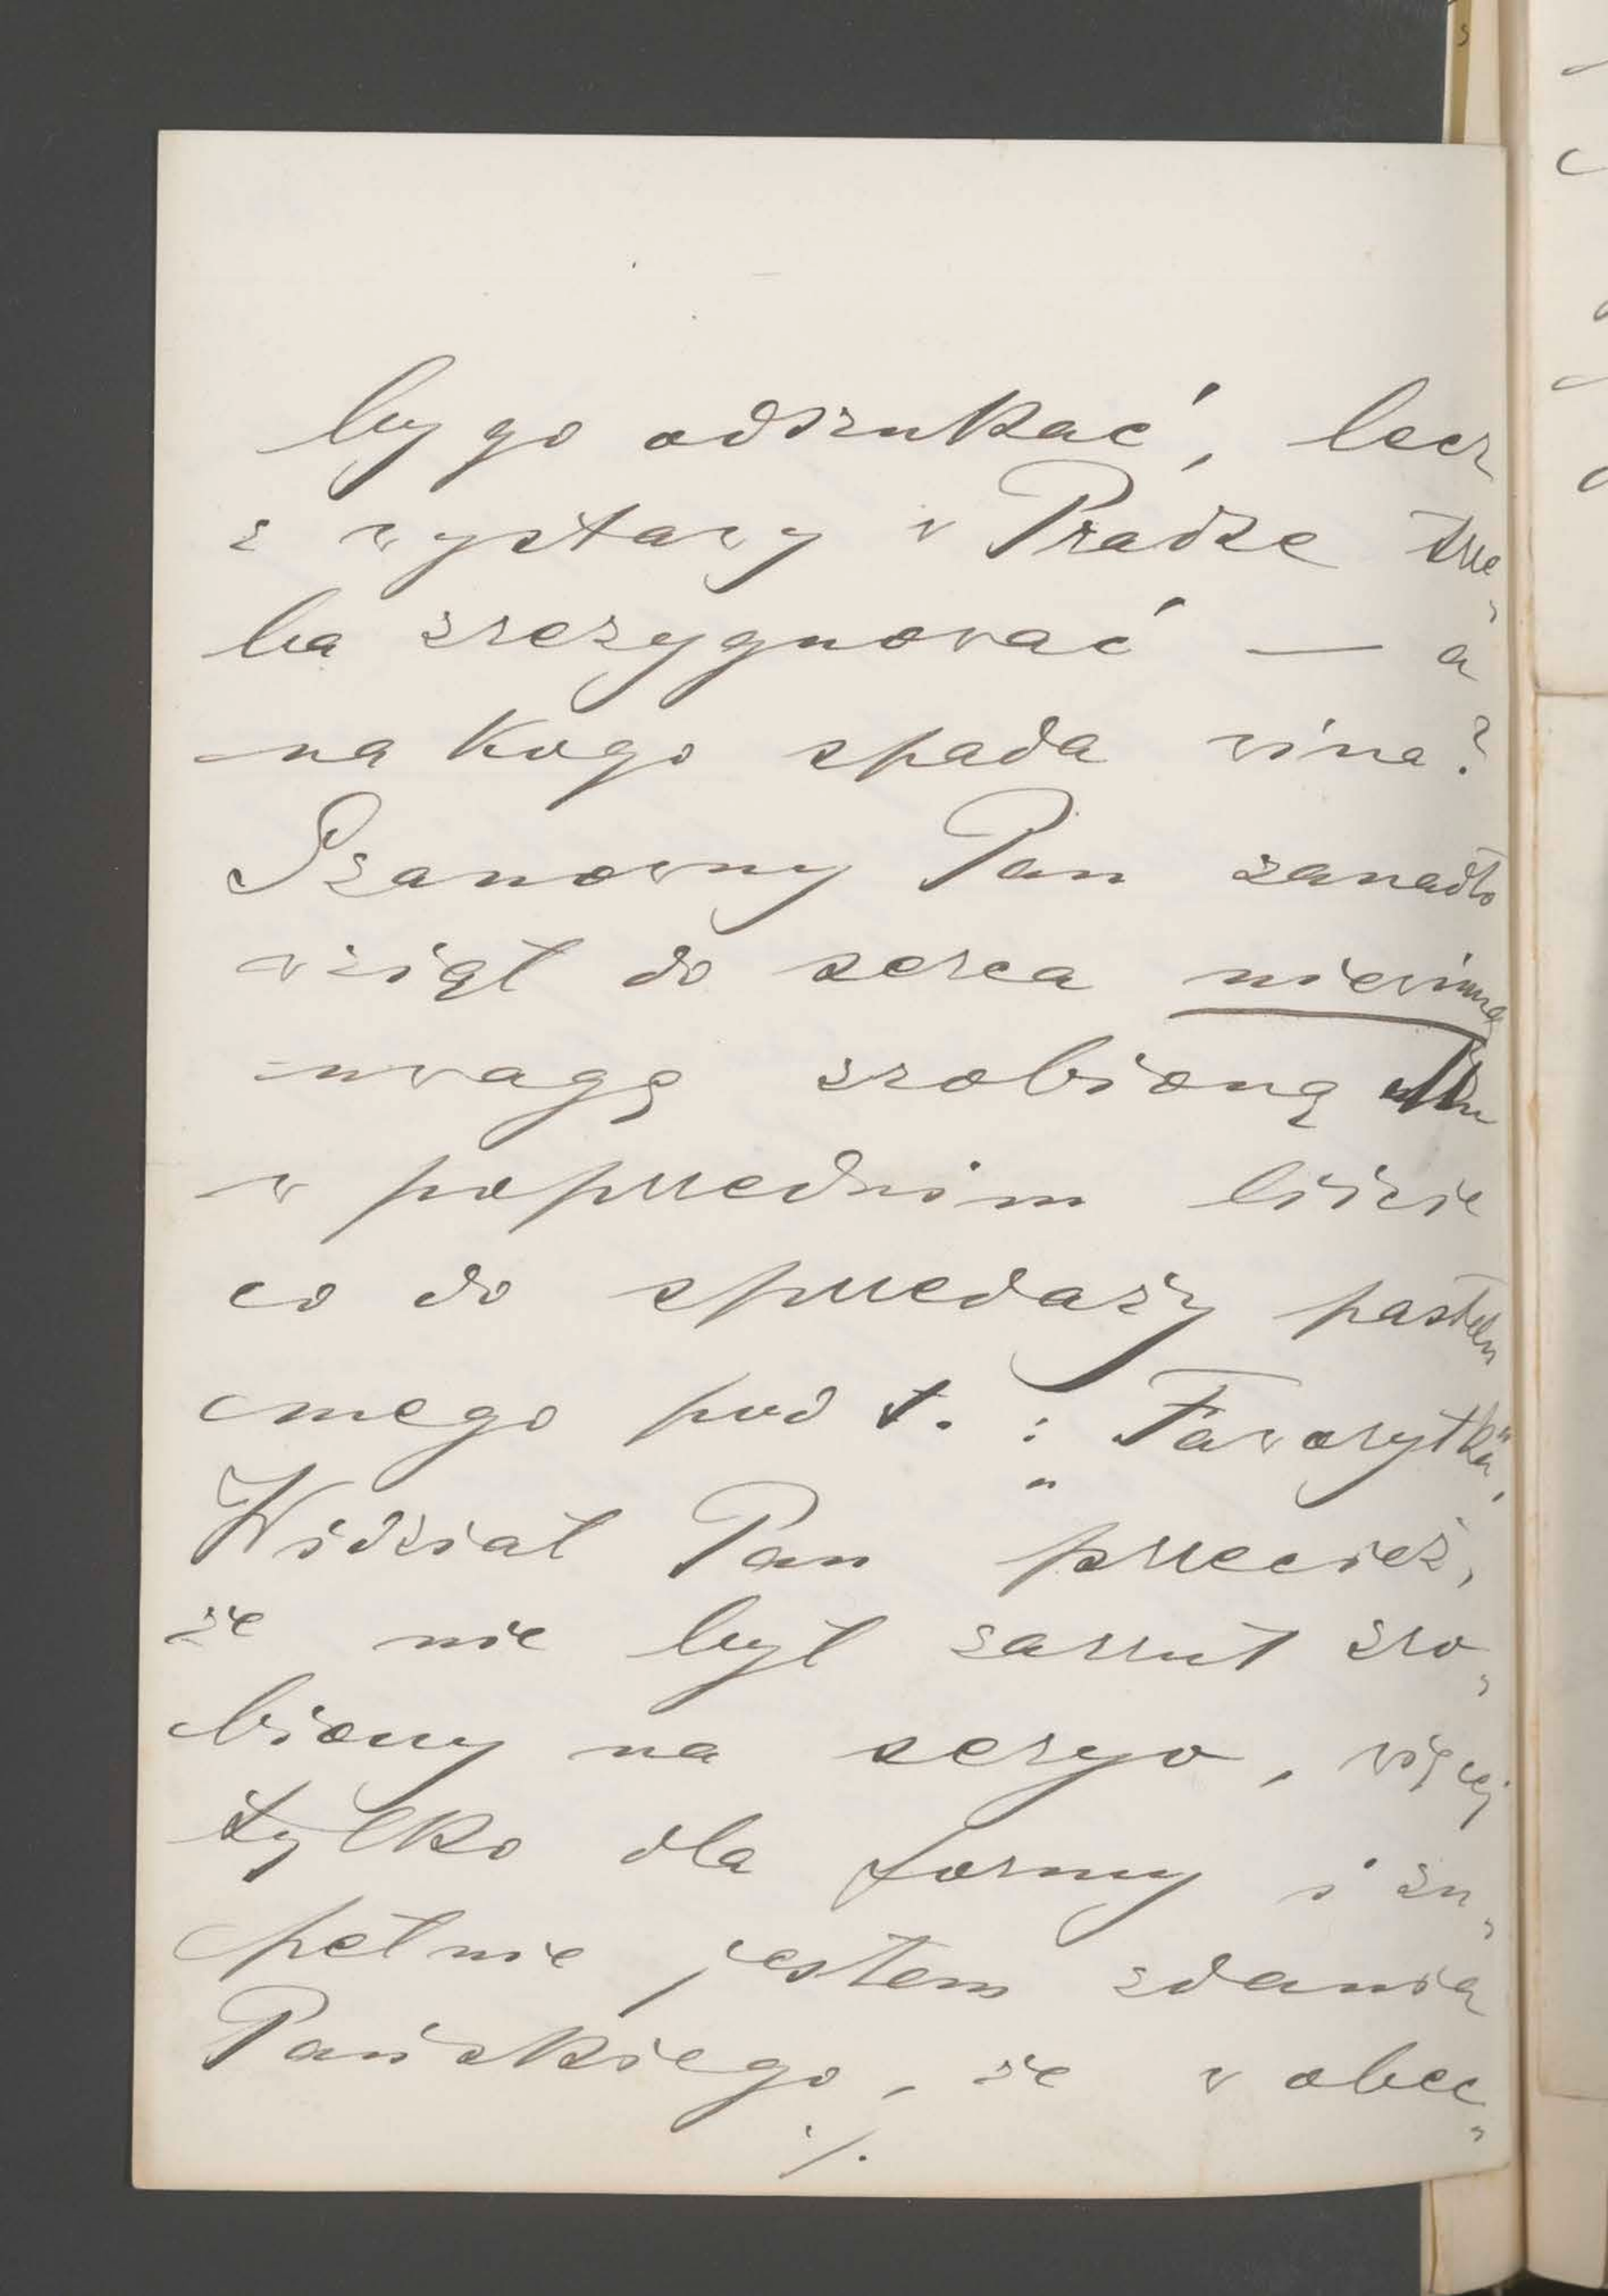 by go odszukać, lecz
z wystawy w Pradze trze„
ba zrezygnować — a
na kogo spada wina?
Szanowny Pan zanadto
wziął do serca niewinną
uwagę zrobioną
w poprzednim liście
co do sprzedaży pastelu
mego pod t. : „Faworytka".
Widział Pan przecież,
że nie był zarzut zro„
biony na seryo, więcej
tylko dla formy i zu„
pełnie jestem zdania
Pańskiego, że w obec„
./.